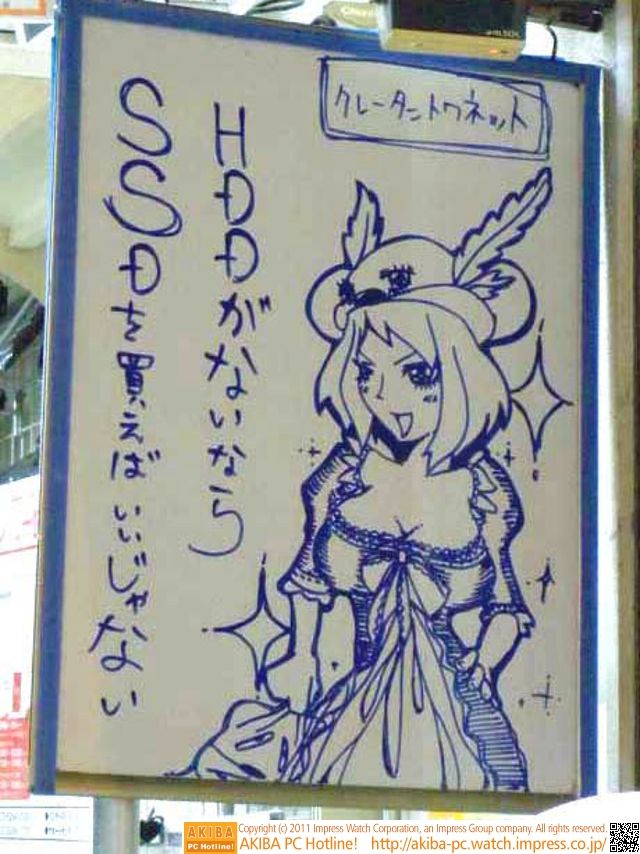 クレータントワネット
HDDがないなら
SSDを買えばいいじゃない
AKIBA
PC Hotline!
Copyright (c) 2011 Impress Watch Corporation, an Impress Group company. All rights reserved.
AKIBA PC Hotline! http://akiba-pc.watch.impress.co.jp/